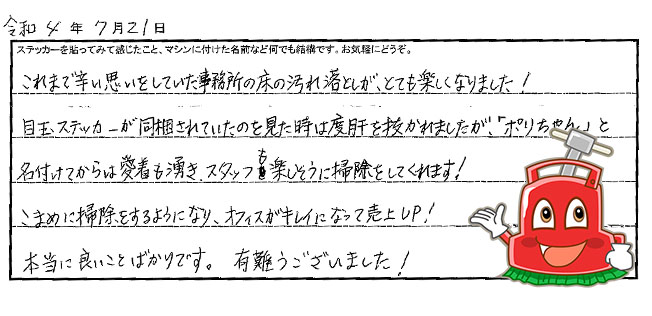 令和 4 年 7月21日
ステッカーを貼ってみて感じたこと、マシンに付けた名前など何でも結構です。お気軽にどうぞ。
これまで辛い思いをしていた事務所の床の汚れ落としが、とても楽しくなりました！
目玉ステッカーが同梱されていたのを見た時は度肝を抜かれましたが、「ポリちゃん」と
名付けてからは愛着も湧き、スタッフも楽しそうに掃除をしてくれます！
こまめに掃除をするようになり、オフィスがキレイになって売上UP！
本当に良いことばかりです。 有難うございました！